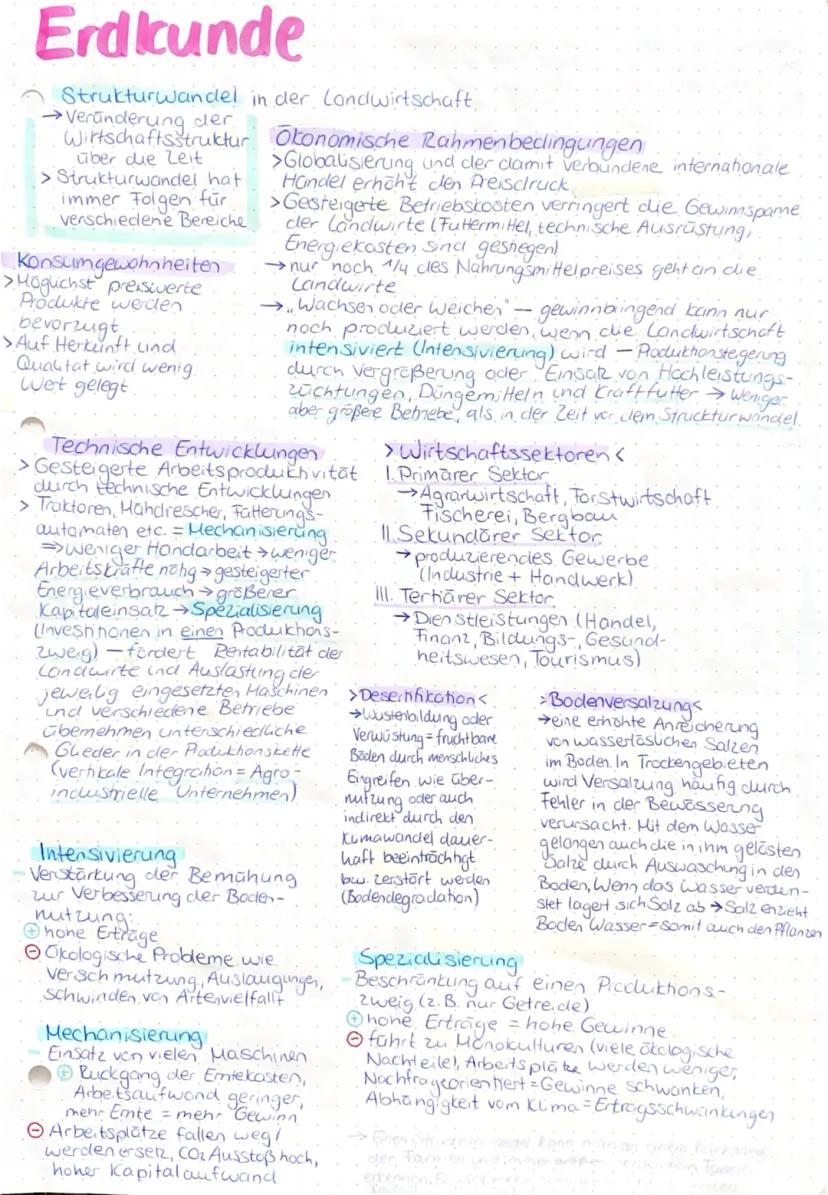 Erdkunde
Strukturwandel in der Landwirtschaft
→ Veränderung der
Wirtschaftsstruktur
über die Zeit
> Strukturwandel hat
immer Folgen für
verschiedene Bereiche
Konsumgewohnheiten
> Möglichst preiswerte
Produkte werden
bevorzugt
> Auf Herkunft und
Qualität wird wenig
Wert gelegt
Ökonomische Rahmenbedingungen
> Globalisierung und der damit verbundene internationale
Handel erhöht den Preisdruck
> Gesteigerte Betriebskosten verringert die Gewinnspanne
der Landwirte (Futtermittel, technische Ausrüstung,
Energiekosten sind gestiegen)
→ nur noch 1/4 des Nahrungsmittelpreises geht an die
Landwirte
→ „Wachsen oder Weichen" – gewinnbringend kann nur
noch produziert werden, wenn die Landwirtschaft
intensiviert (Intensivierung) wird – Produktionsteigerung
durch Vergrößerung oder Einsatz von Hochleistungs-
züchtungen, Düngemitteln und Kraftfutter → weniger
aber größere Betriebe, als in der Zeit vor dem Strukturwandel
Technische Entwicklungen
> Gesteigerte Arbeitsproduktivität
durch technische Entwicklungen
> Traktoren, Mähdrescher, Fütterungs-
automaten etc. = Mechanisierung
⇒ weniger Handarbeit → weniger
Arbeitskräfte nötig → gesteigerter
Energieverbrauch → größerer
Kapitaleinsatz → Spezialisierung
(Investitionen in einen Produktions-
zweig) – fördert Rentabilität der
Landwirte und Auslastung der
jeweilig eingesetzten Maschinen
und verschiedene Betriebe
übernehmen unterschiedliche
Glieder in der Produktionskette
(vertikale Integration = Agro-
industrielle Unternehmen)
> Wirtschaftssektoren <
I. Primärer Sektor
→ Agrarwirtschaft, Forstwirtschaft
Fischerei, Bergbau
II. Sekundärer Sektor
→ produzierendes Gewerbe
(Industrie + Handwerk)
III. Tertiärer Sektor
→ Dienstleistungen (Handel,
Finanz, Bildungs-, Gesund-
heitswesen, Tourismus)
> Desertifikation <
→ Wüstenbildung oder
Verwüstung = fruchtbare
Böden durch menschliches
Eingreifen wie über-
nutzung oder auch
indirekt durch den
Klimawandel dauer-
haft beeinträchtigt
bzw. zerstört werden
(Bodendegradation)
> Bodenversalzung <
→ eine erhöhte Anreicherung
von wasserlöslichen Salzen
im Boden. In Trockengebieten
wird Versalzung häufig durch
Fehler in der Bewässerung
verursacht. Mit dem Wasser
gelangen auch die in ihm gelösten
Salze durch Auswaschung in den
Boden, Wenn das Wasser verdun-
stet lagert sich Salz ab → Salz entzieht
Boden Wasser = somit auch den Pflanzen
Intensivierung
– Verstärkung der Bemühung
zur Verbesserung der Boden-
nutzung:
⊕ hohe Erträge
⊖ Ökologische Probleme wie
Verschmutzung, Auslaugungen,
schwinden von Artenvielfallt
Mechanisierung
– Einsatz von vielen Maschinen
⊕ Rückgang der Erntekosten,
Arbeitsaufwand geringer,
mehr Ernte = mehr Gewinn
⊖ Arbeitsplätze fallen weg/
werden ersetz, CO2 Ausstoß hoch,
hoher Kapitalaufwand
Spezialisierung
– Beschränkung auf einen Produktions-
zweig (z.B. nur Getreide)
⊕ hohe Erträge = hohe Gewinne
⊖ führt zu Monokulturen (viele ökologische
Nachteile), Arbeitsplätze werden weniger,
Nachfrageorientiert = Gewinne schwanken,
Abhängigkeit vom Klima = Ertragsschwankungen
→ Einen Strukturwandel kann man an einem
der Farmen und immer